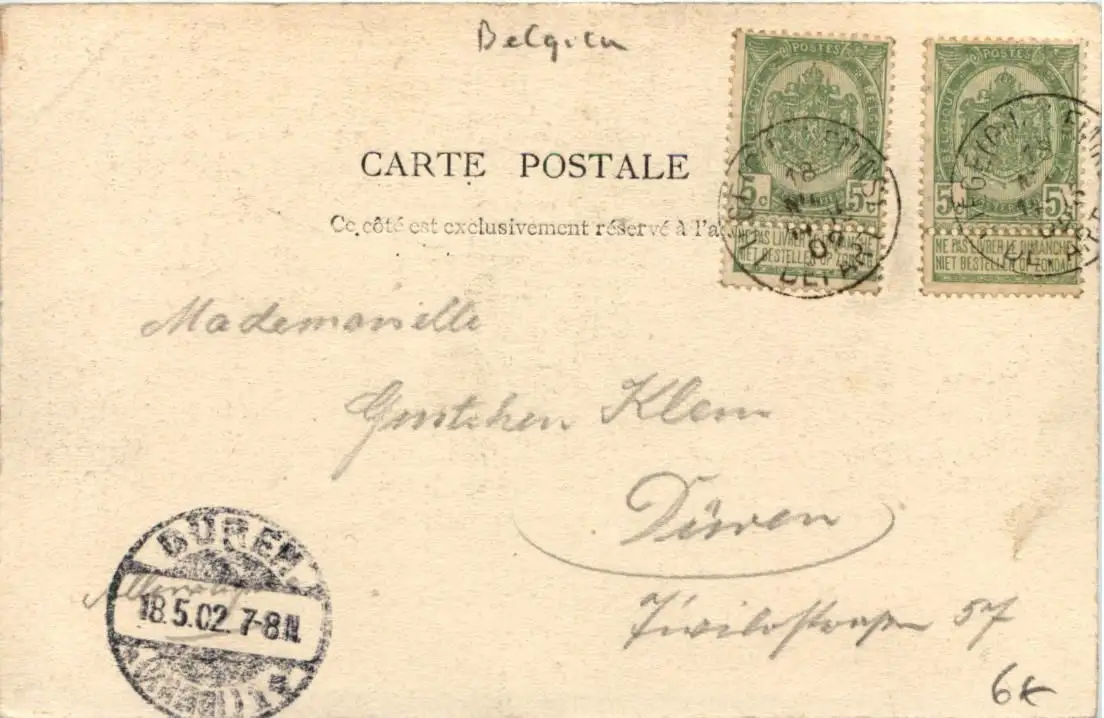 Belgien
POSTES
POSTES
CARTE POSTALE
5c 5c
5c 5
Ce côté est exclusivement réservé à l'a
NE PAS LIVRER LE DIMANCHE
NIET BESTELLEN OP ZONDAG
NE PAS LIVRER LE DIMANCHE
NIET BESTELLEN OP ZONDAG
18
DEPART
18
DEPART
Mademoiselle
Gustchen Klein
Düren
DÜREN
18.5.02. 7-8 N.
57
6